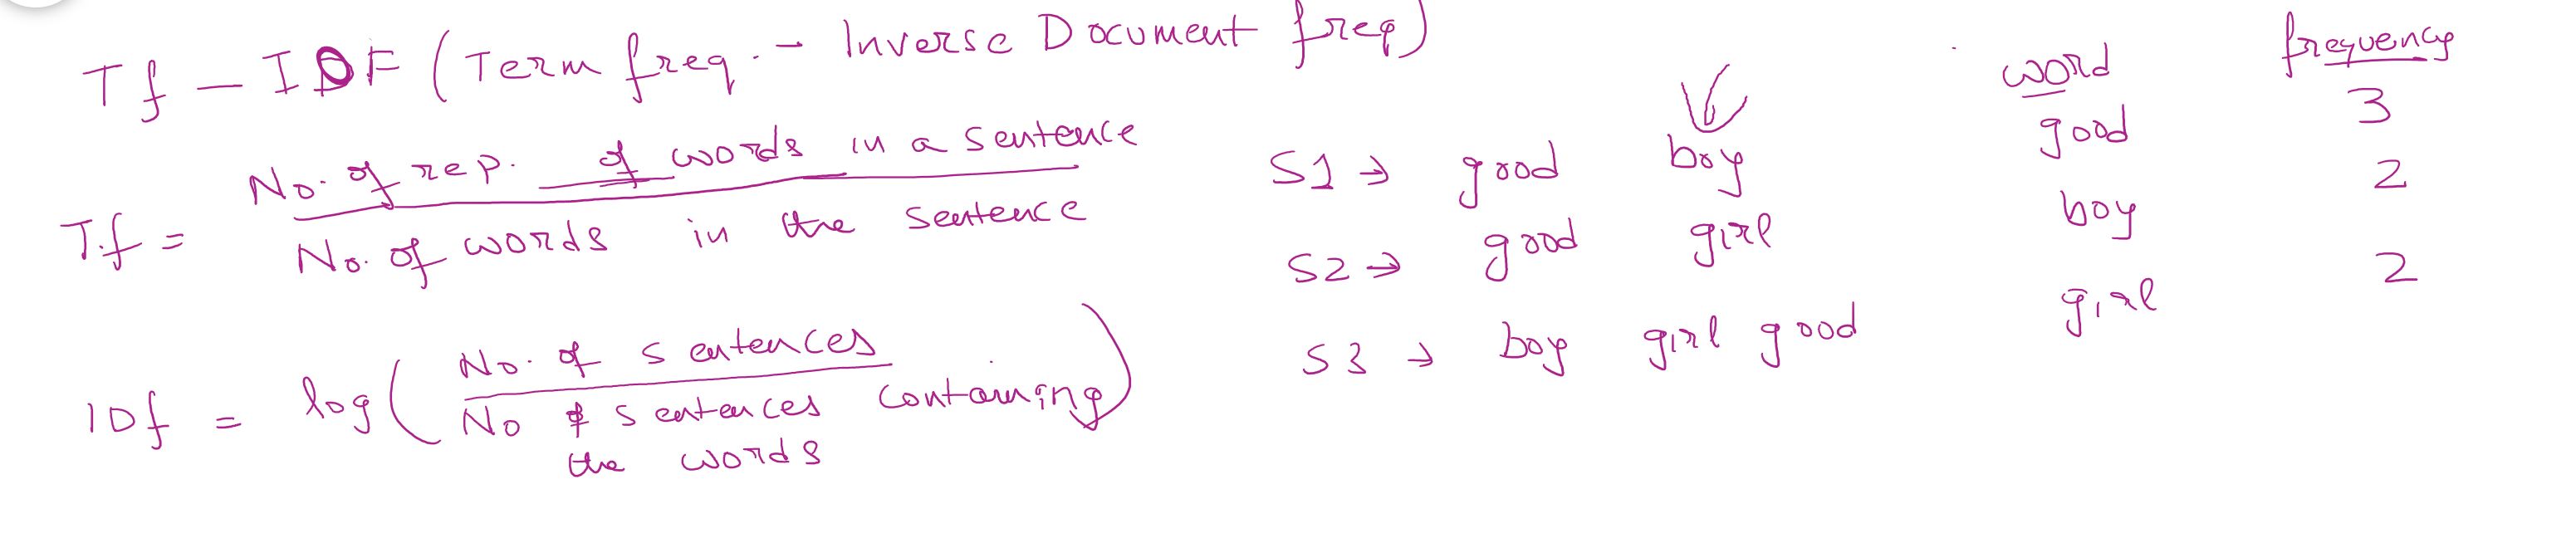 Tf - IDF (Term freq. - Inverse Document freq)
Tf = No. of rep. of words in a sentence
No. of words in the sentence
IDf = log( No. of sentences
No of sentences containing )
the words
S1 → good boy
S2 → good girl
S3 → boy girl good
word frequency
good 3
boy 2
girl 2